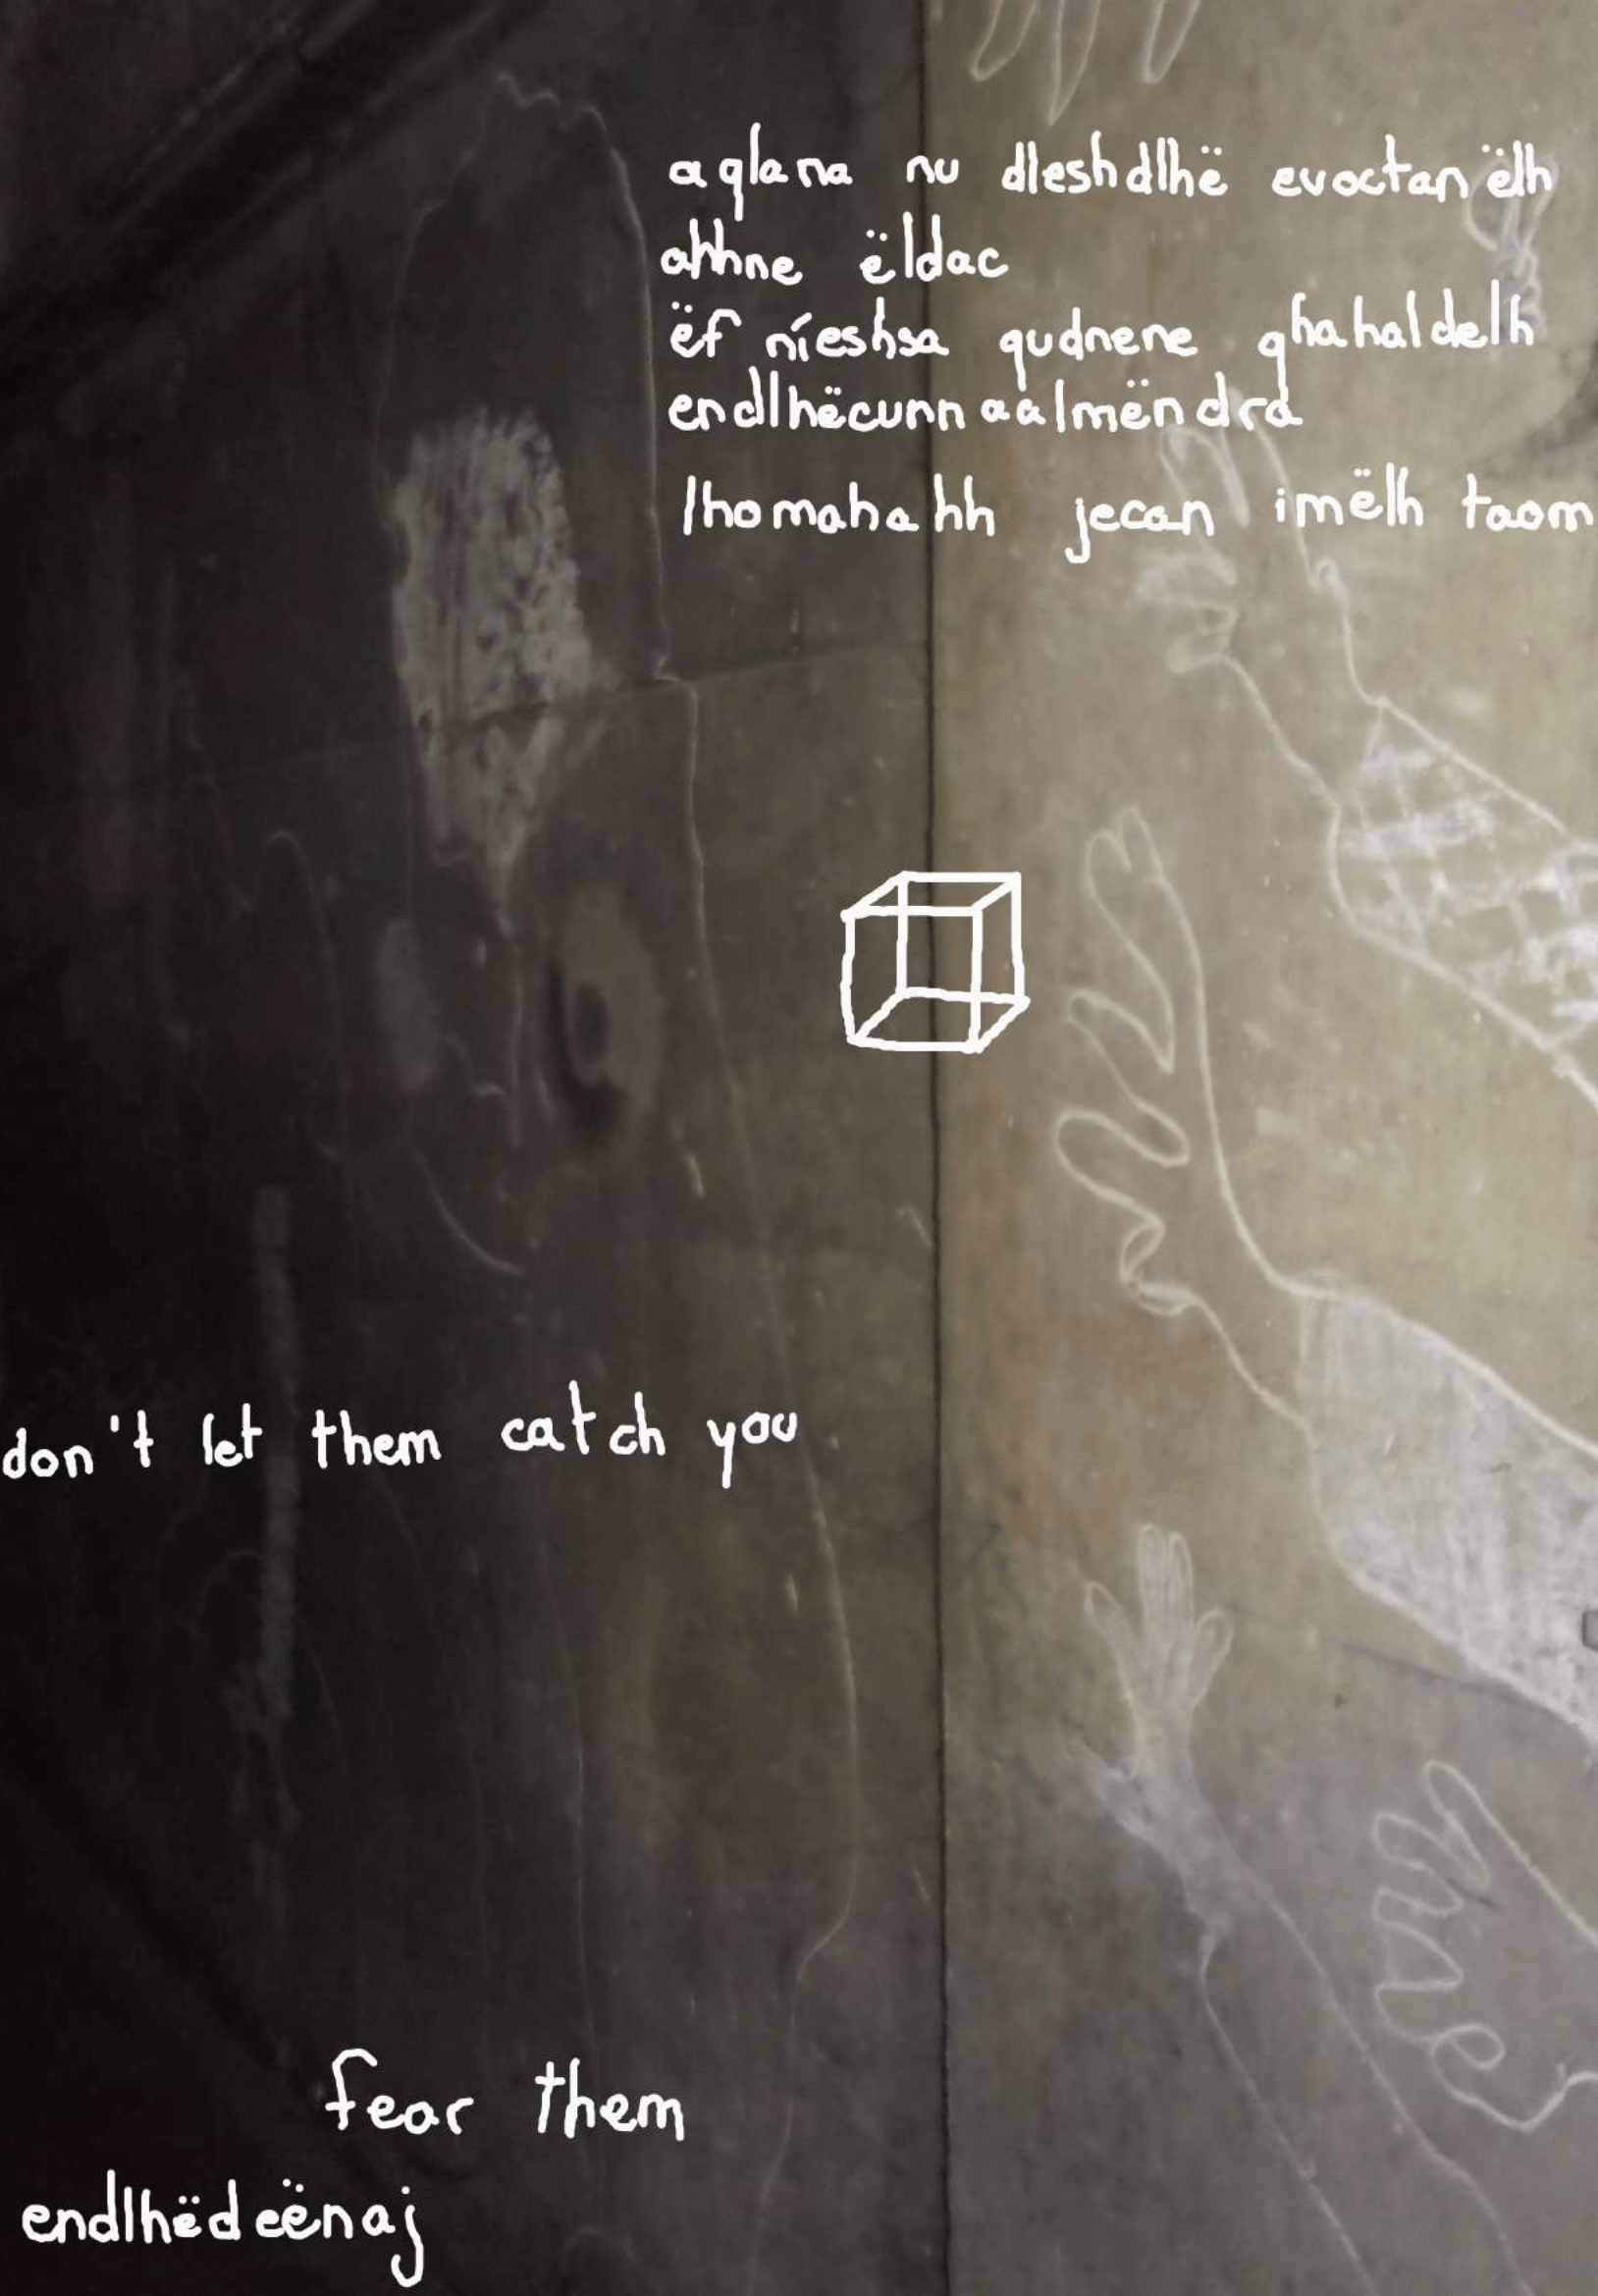 aqlana nu dleshdlhë evoctanëlh
ahhne ëldac
ëf níeshsa qudnene qhahaldelh
endlhëcunnaalmëndra
lhomahahh jecan imëlh taom
don't let them catch you
fear them
endlhëdeënaj